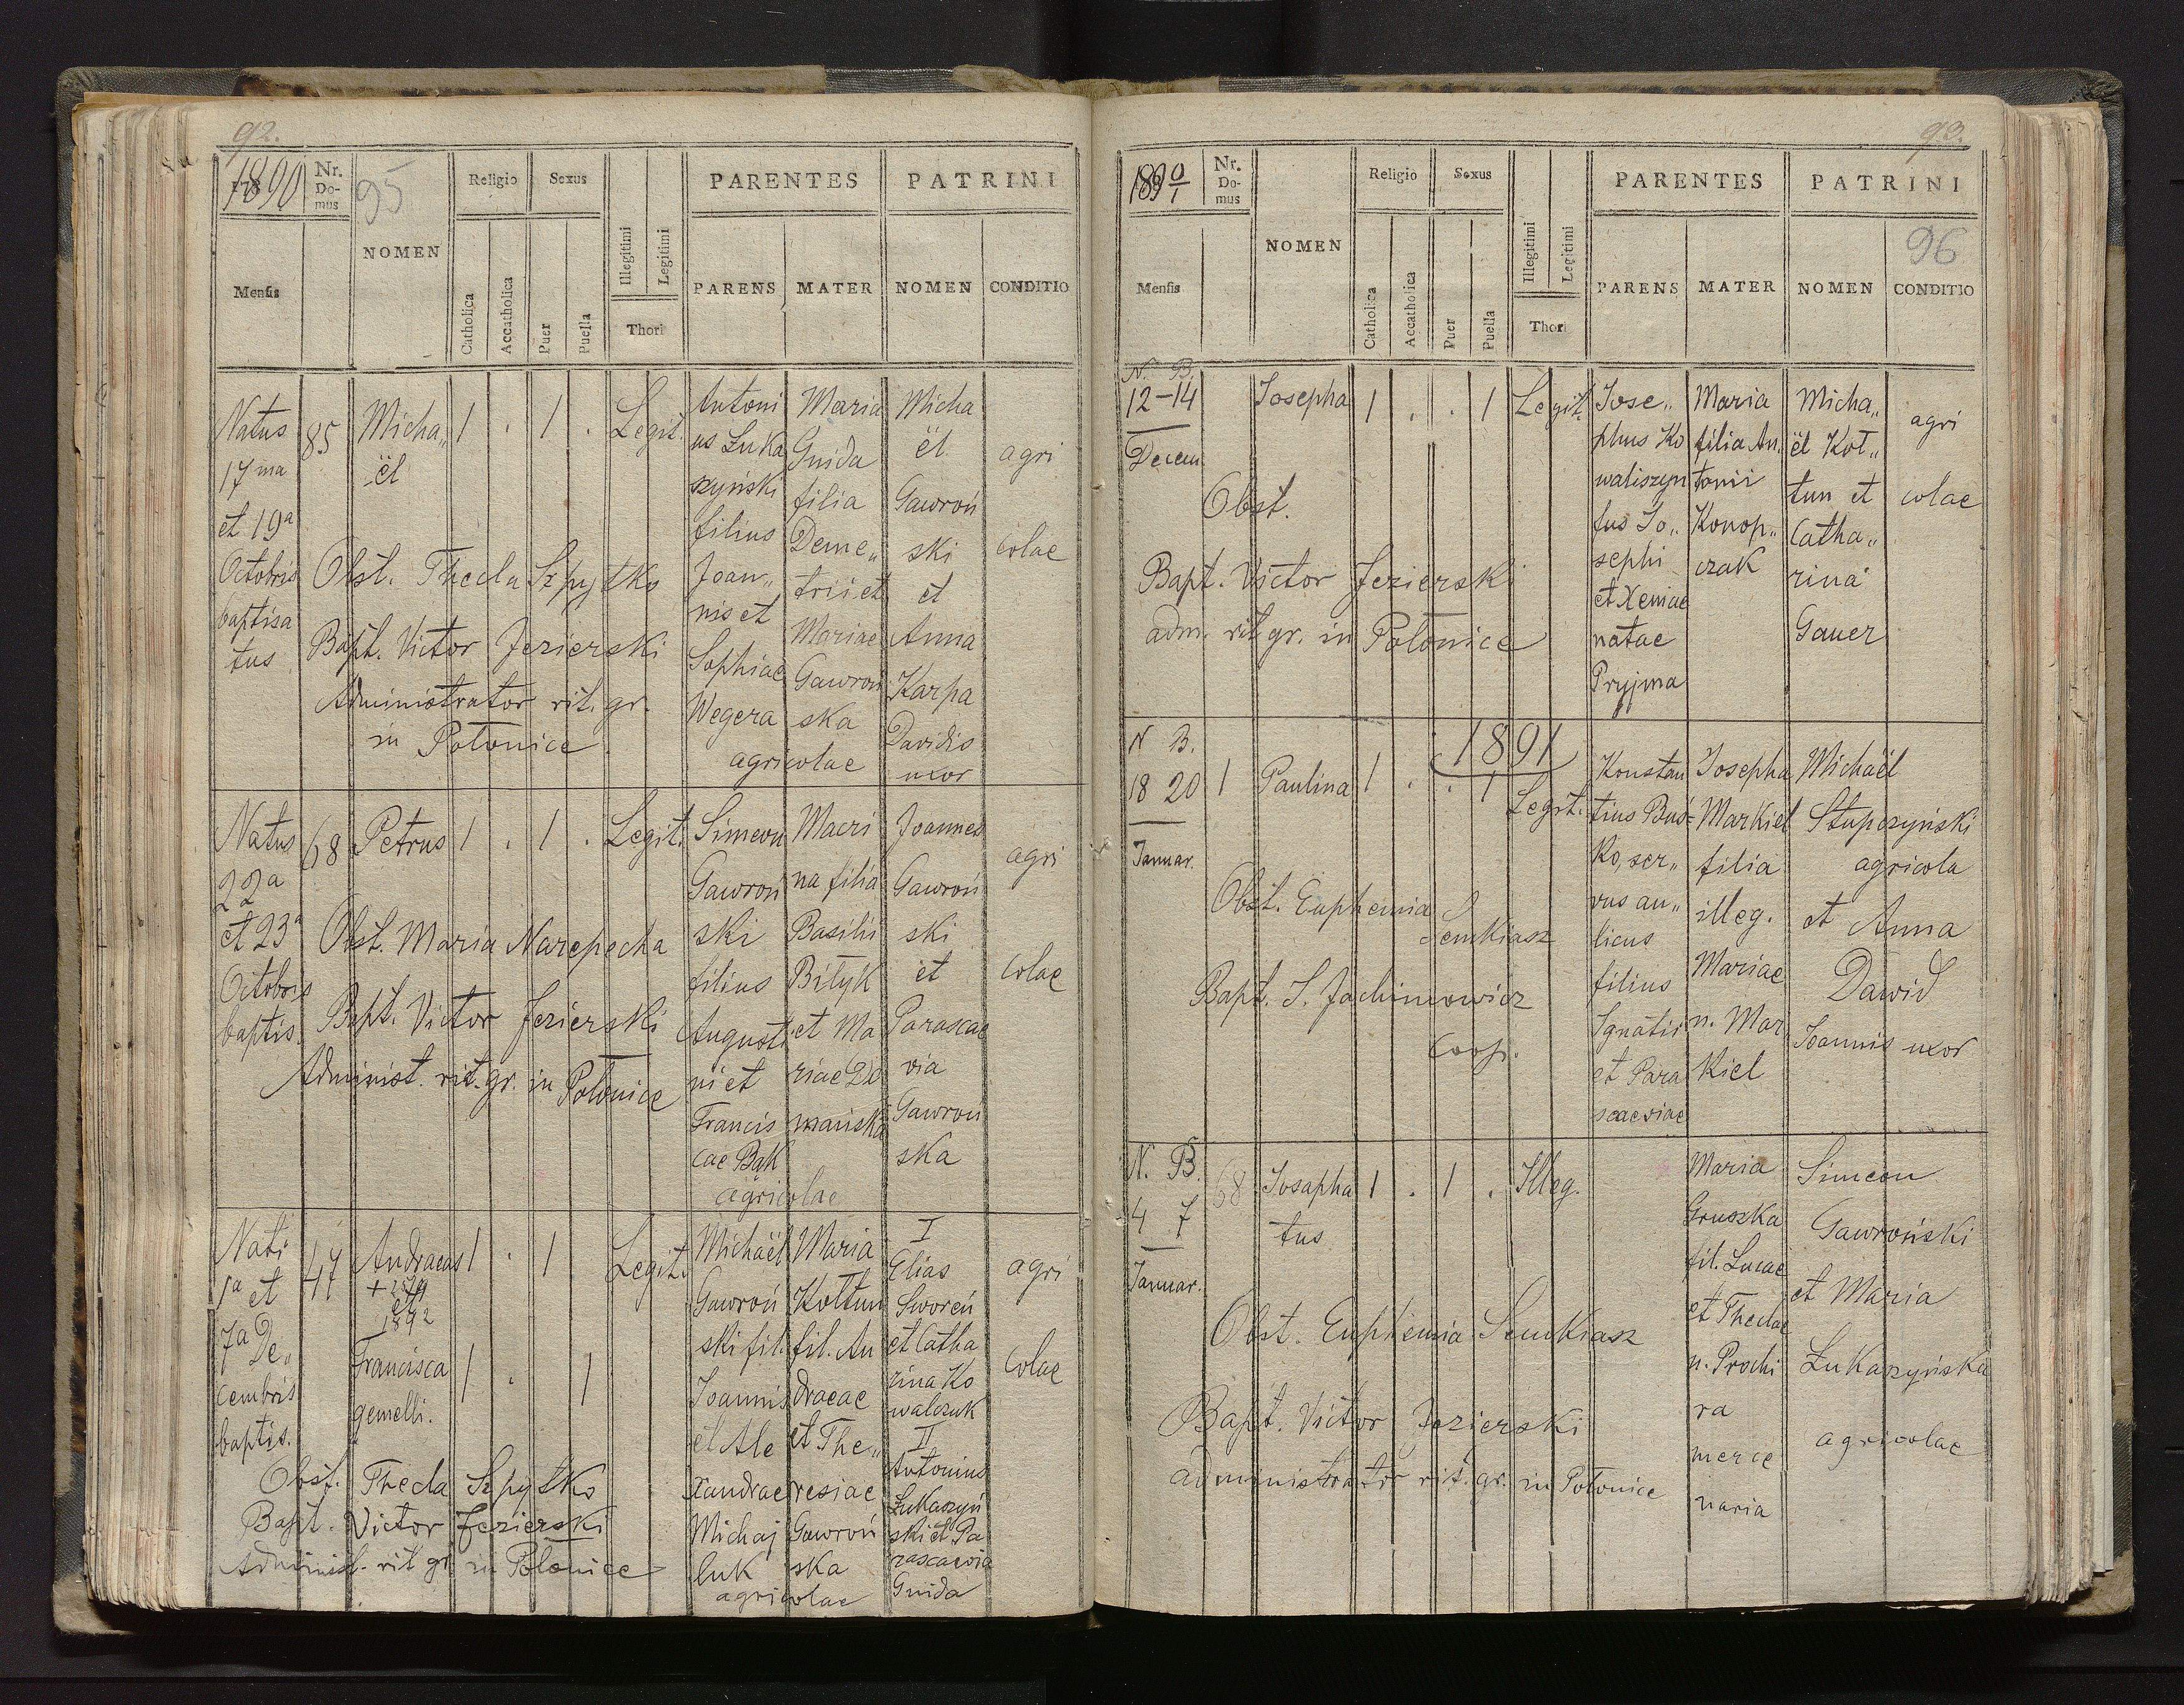 92.
1890
Nr. Do- mus
95
NOMEN
Religio
Sexus
PARENTES
PATRINI
Mensis
Catholica
Accatholica
Puer
Puella
Illegitimi
Legitimi
Thori
PARENS
MATER
NOMEN
CONDITIO
Natus
17ma
et 19a
Octobris
baptisa
tus
85
Micha„
ël
1 . 1 .
Legit.
Antoni
us Łuka
szyński
filius
Joan„
nis et
Sophiae
Wegera
agricolae
Maria
Guida
filia
Deme„
trii et
Mariae
Gawroń
ska
Micha
ël
Gawroń
ski
et
Anna
Karpa
Davidis
uxor
agri
colae
Obst. Thecla Szpytko
Bapt. Victor Jezierski
Administrator rit. gr.
in Połonice
Natus
22a
et 23a
Octobris
baptis.
68
Petrus
1 . 1 .
Legit.
Simeon
Gawroń
ski
filius
Augusti
ni et
Francis
cae Bąk
agricolae
Macri
na filia
Basilii
Bityk
et Ma
riae Do
mańska
Joannes
Gawroń
ski
et
Parascae
via
Gawroń
ska
agri
colae
Obst. Maria Narepecha
Bapt. Victor Jezierski
Administ. rit. gr. in Połonice
Nati
1a et
7a De„
cembris
baptis.
47
Andraeas
1892
Francisca
gemelli.
1 . 1
1 . 1
Legit.
Michaël
Gawroń
ski fil.
Joannis
et Ale
xandrae
Michaj
luk
agricolae
Maria
Kołtun
fil. An
draeae
et The„
resiae
Gawroń
ska
I
Elias
Sworeń
et Catha
rina Ko
walczuk
II
Antonius
Łukaszyń
ski et Pa
rascaevia
Guida
agri
colae
Obst. Thecla Szpytko
Bapt. Victor Jezierski
Administ. rit gr. in Połonice
93.
1890/1
Nr. Do- mus
NOMEN
Religio
Sexus
PARENTES
PATRINI
96
Mensis
Catholica
Accatholica
Puer
Puella
Illegitimi
Legitimi
Thori
PARENS
MATER
NOMEN
CONDITIO
N. B.
12-14
Decem.
Josepha
1 . . 1
Legit.
Jose„
phus Ko
waliszyn
fus Jo„
sephi
et Xeniae
natae
Pryjma
Maria
filia An.
tonii
Konop„
czak
Micha„
ël Koł„
tun et
Catha„
rina
Gauer
agri
colae
Obst.
Bapt. Victor Jezierski
adm. rit gr. in Połonice
1891
N B.
18 20
Januar.
1
Paulina
1 . . 1
Legit.
Konstan
tius Buś=
ko, ser„
vus au„
licus
filius
Ignatii
et Para
scaeviae
Josepha
Markiel
filia
illeg.
Mariae
n. Mar
kiel
Michaël
Stupczyński
agricola
et Anna
Dawid
Joannis uxor
Obst. Euphemia
Semkiasz
Bapt. J. Jachimowicz
coop.
N. B.
4 7
Januar.
68
Josapha
tus
1 . 1 .
Illeg.
Maria
Gruszka
fil. Lucae
et Theclae
n. Prochi
ra
merce
naria
Simeon
Gawroński
et Maria
Łukaszyńska
agricolae
Obst. Euphemia Semkiasz
Bapt. Victor Jezierski
administrator rit. gr. in Połonice